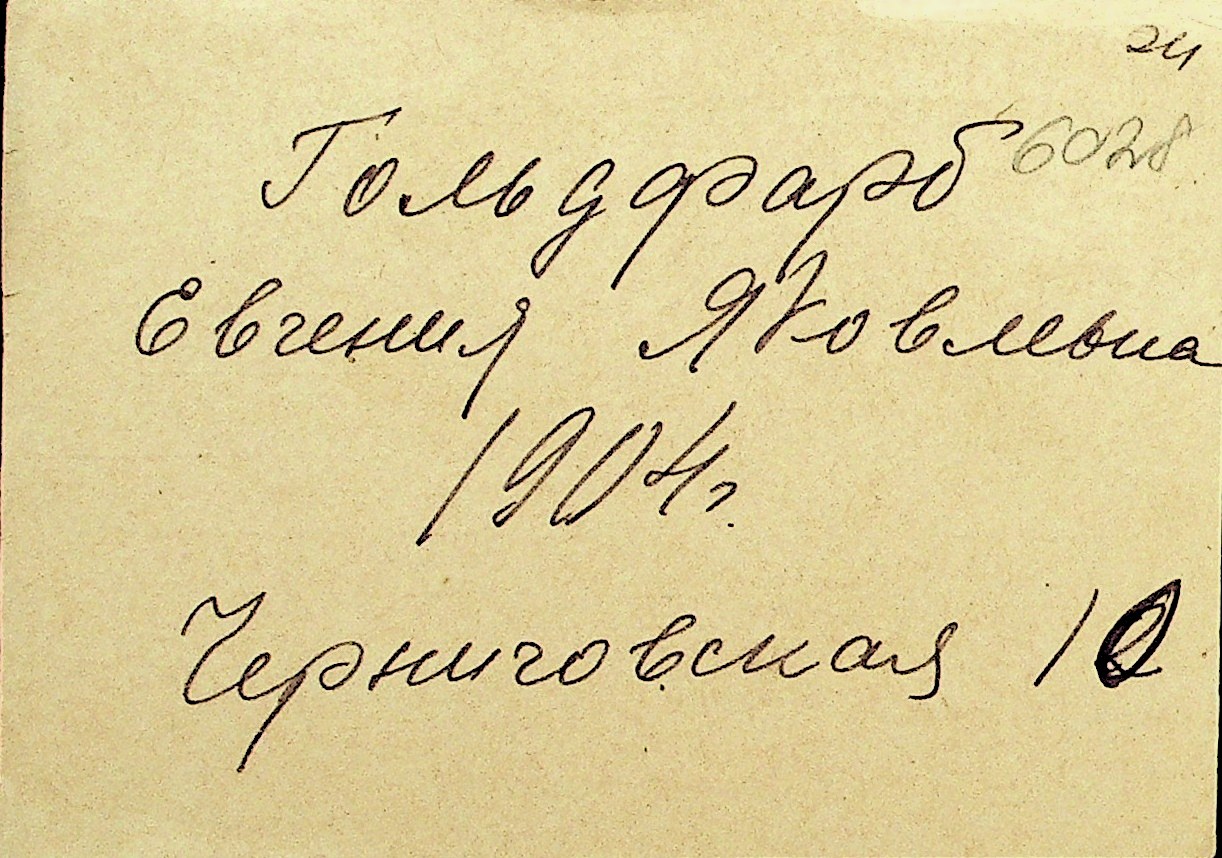 Гольдфарб 6028
Евгения Яковлевна
1904 г.
Черниговская